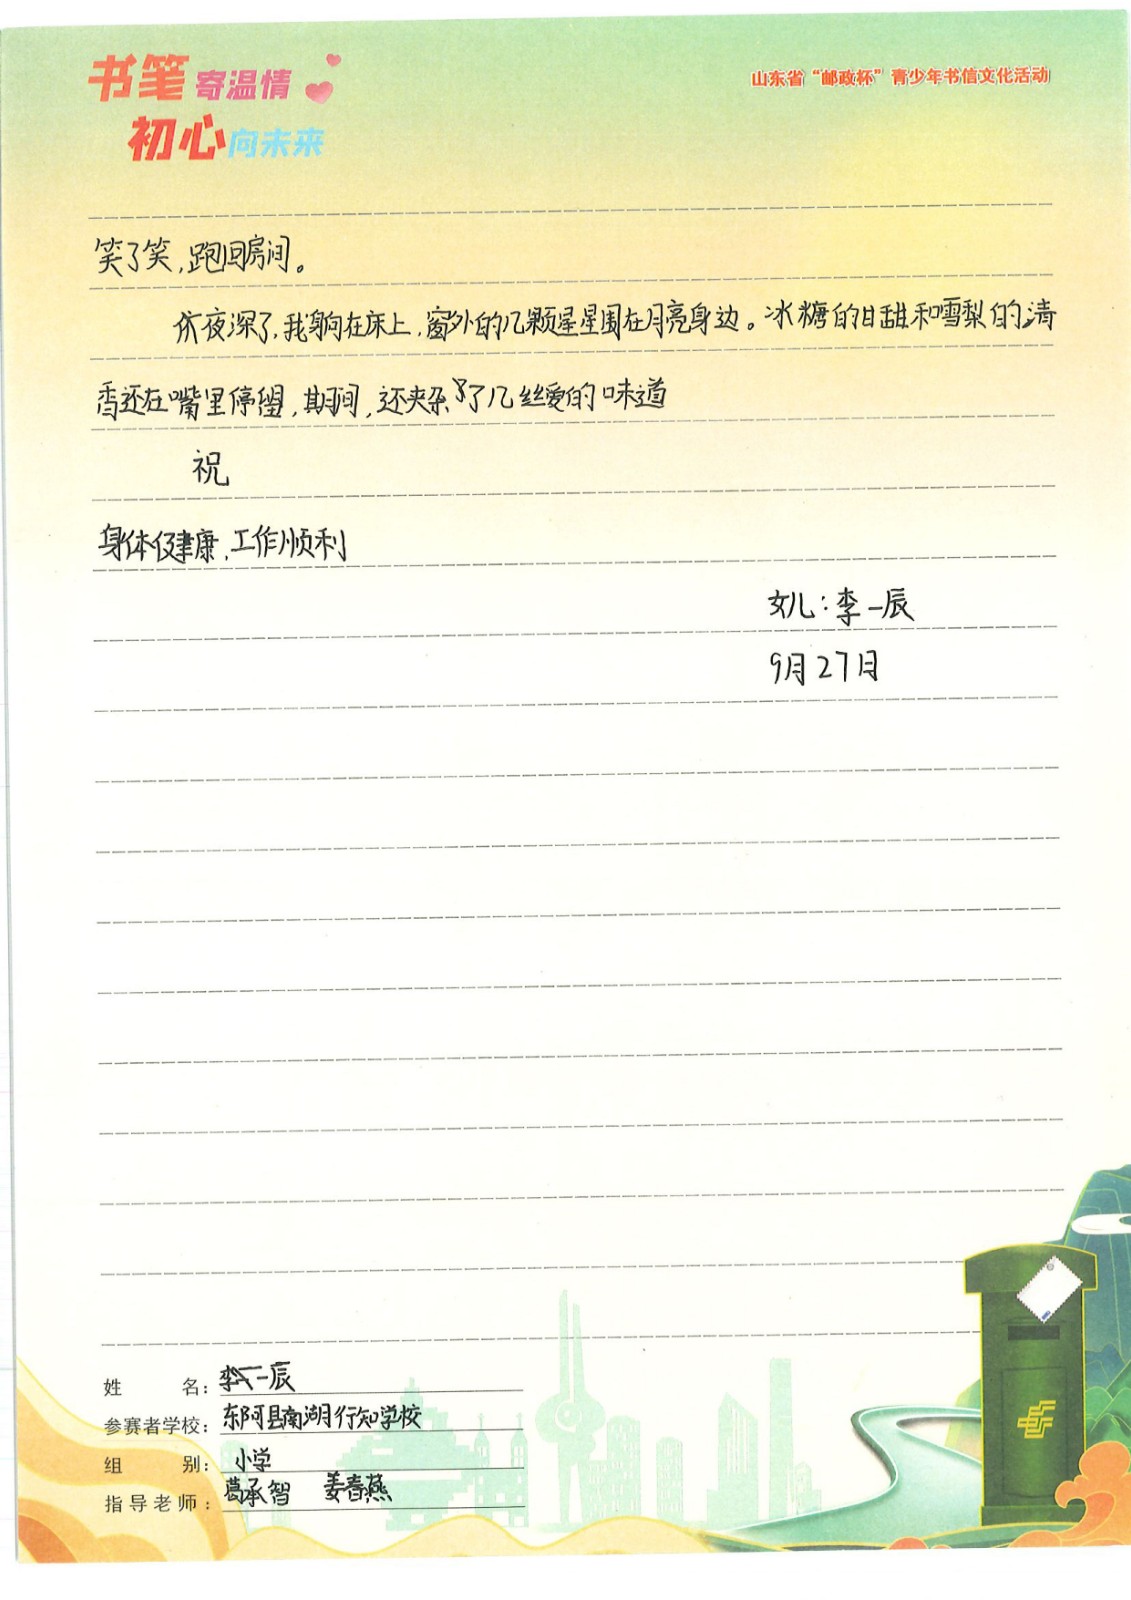 书笔寄温情
初心向未来
山东省“邮政杯”青少年书信文化活动
笑了笑,跑回房间。
夜深了,我躺在床上,窗外的几颗星星围在月亮身边。冰糖的甘甜和雪梨的清
香还在嘴里停留,期间,还夹杂了几丝爱的味道
祝
身体健康,工作顺利
女儿:李一辰
9月27日
姓名:李一辰
参赛者学校:东阿县南湖行知学校
组别:小学
指导老师:葛承智 姜春燕